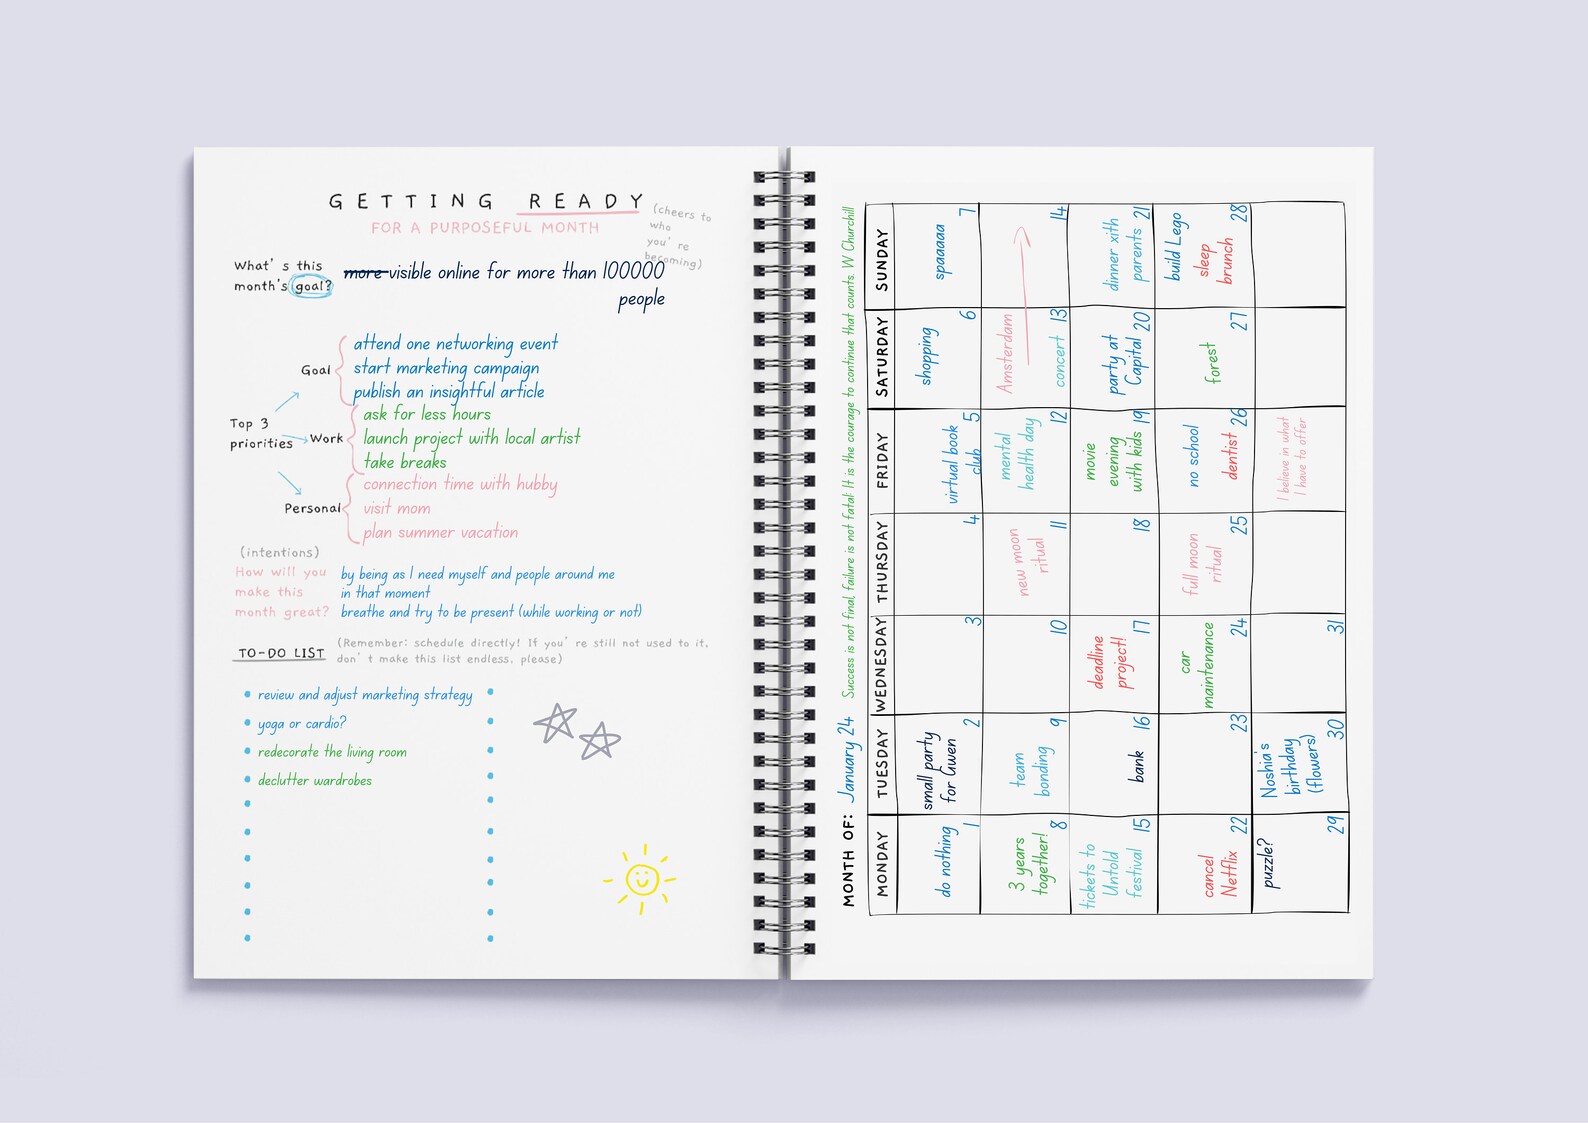 GETTING READY
FOR A PURPOSEFUL MONTH
(cheers to
who
you're
becoming)
What's this
month's goal?
more visible online for more than 100000
people
Top 3
priorities
Goal
attend one networking event
start marketing campaign
publish an insightful article
Work
ask for less hours
launch project with local artist
take breaks
Personal
connection time with hubby
visit mom
plan summer vacation
(intentions)
How will you
make this
month great?
by being as I need myself and people around me
in that moment
breathe and try to be present (while working or not)
TO-DO LIST
(Remember: schedule directly! If you're still not used to it,
don't make this list endless, please)
review and adjust marketing strategy
yoga or cardio?
redecorate the living room
declutter wardrobes
MONTH OF: January 24 Success is not final, failure is not fatal: It is the courage to continue that counts. W Churchill
MONDAY TUESDAY WEDNESDAY THURSDAY FRIDAY SATURDAY SUNDAY
do nothing
1
small party
for Gwen
2
3
4
virtual book
club
5
shopping
6
spaaaaa
7
3 years
together!
8
team
bonding
9
10
new moon
ritual
11
mental
health day
12
Amsterdam
concert
13
14
tickets to
Untold
festival
15
bank
16
deadline
project!
17
18
movie
evening
with kids
19
party at
Capital
20
dinner xith
parents
21
cancel
Netflix
22
23
car
maintenance
24
full moon
ritual
25
no school
dentist
26
forest
27
build Lego
sleep
brunch
28
puzzle?
29
Noshia's
birthday
(flowers)
30
31
I believe in what
I have to offer